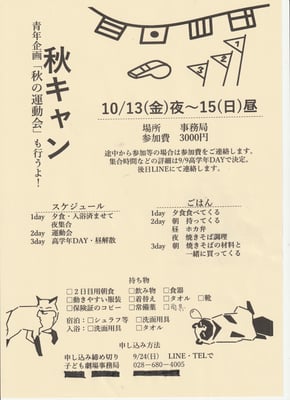 秋キャン
青年企画「秋の運動会」も行うよ!
1
2
3
10/13(金)夜〜15(日)昼
場所 事務局
参加費 3000円
途中から参加等の場合は参加費をご連絡します。
集合時間などの詳細は9/9高学年DAYで決定。
後日LINEにて連絡します。
スケジュール
1day 夕食・入浴済ませて
夜集合
2day 運動会
3day 高学年DAY・昼解散
ごはん
1day 夕食食べてくる
2day 朝 持ってくる
昼 ホカ弁
夜 焼きそば調理
3day 朝 焼きそばの材料と
一緒に買ってくる
持ち物
□2日目用朝食 □飲み物 □食器
□動きやすい服装 □着替え □タオル □靴
□保険証のコピー □常備薬
宿泊:□シュラフ等 □洗面用具
入浴:□洗面用具 □タオル
申し込み方法
申し込み締め切り 9/24(日) LINE・TELで
子ども劇場事務局 028-680-4005